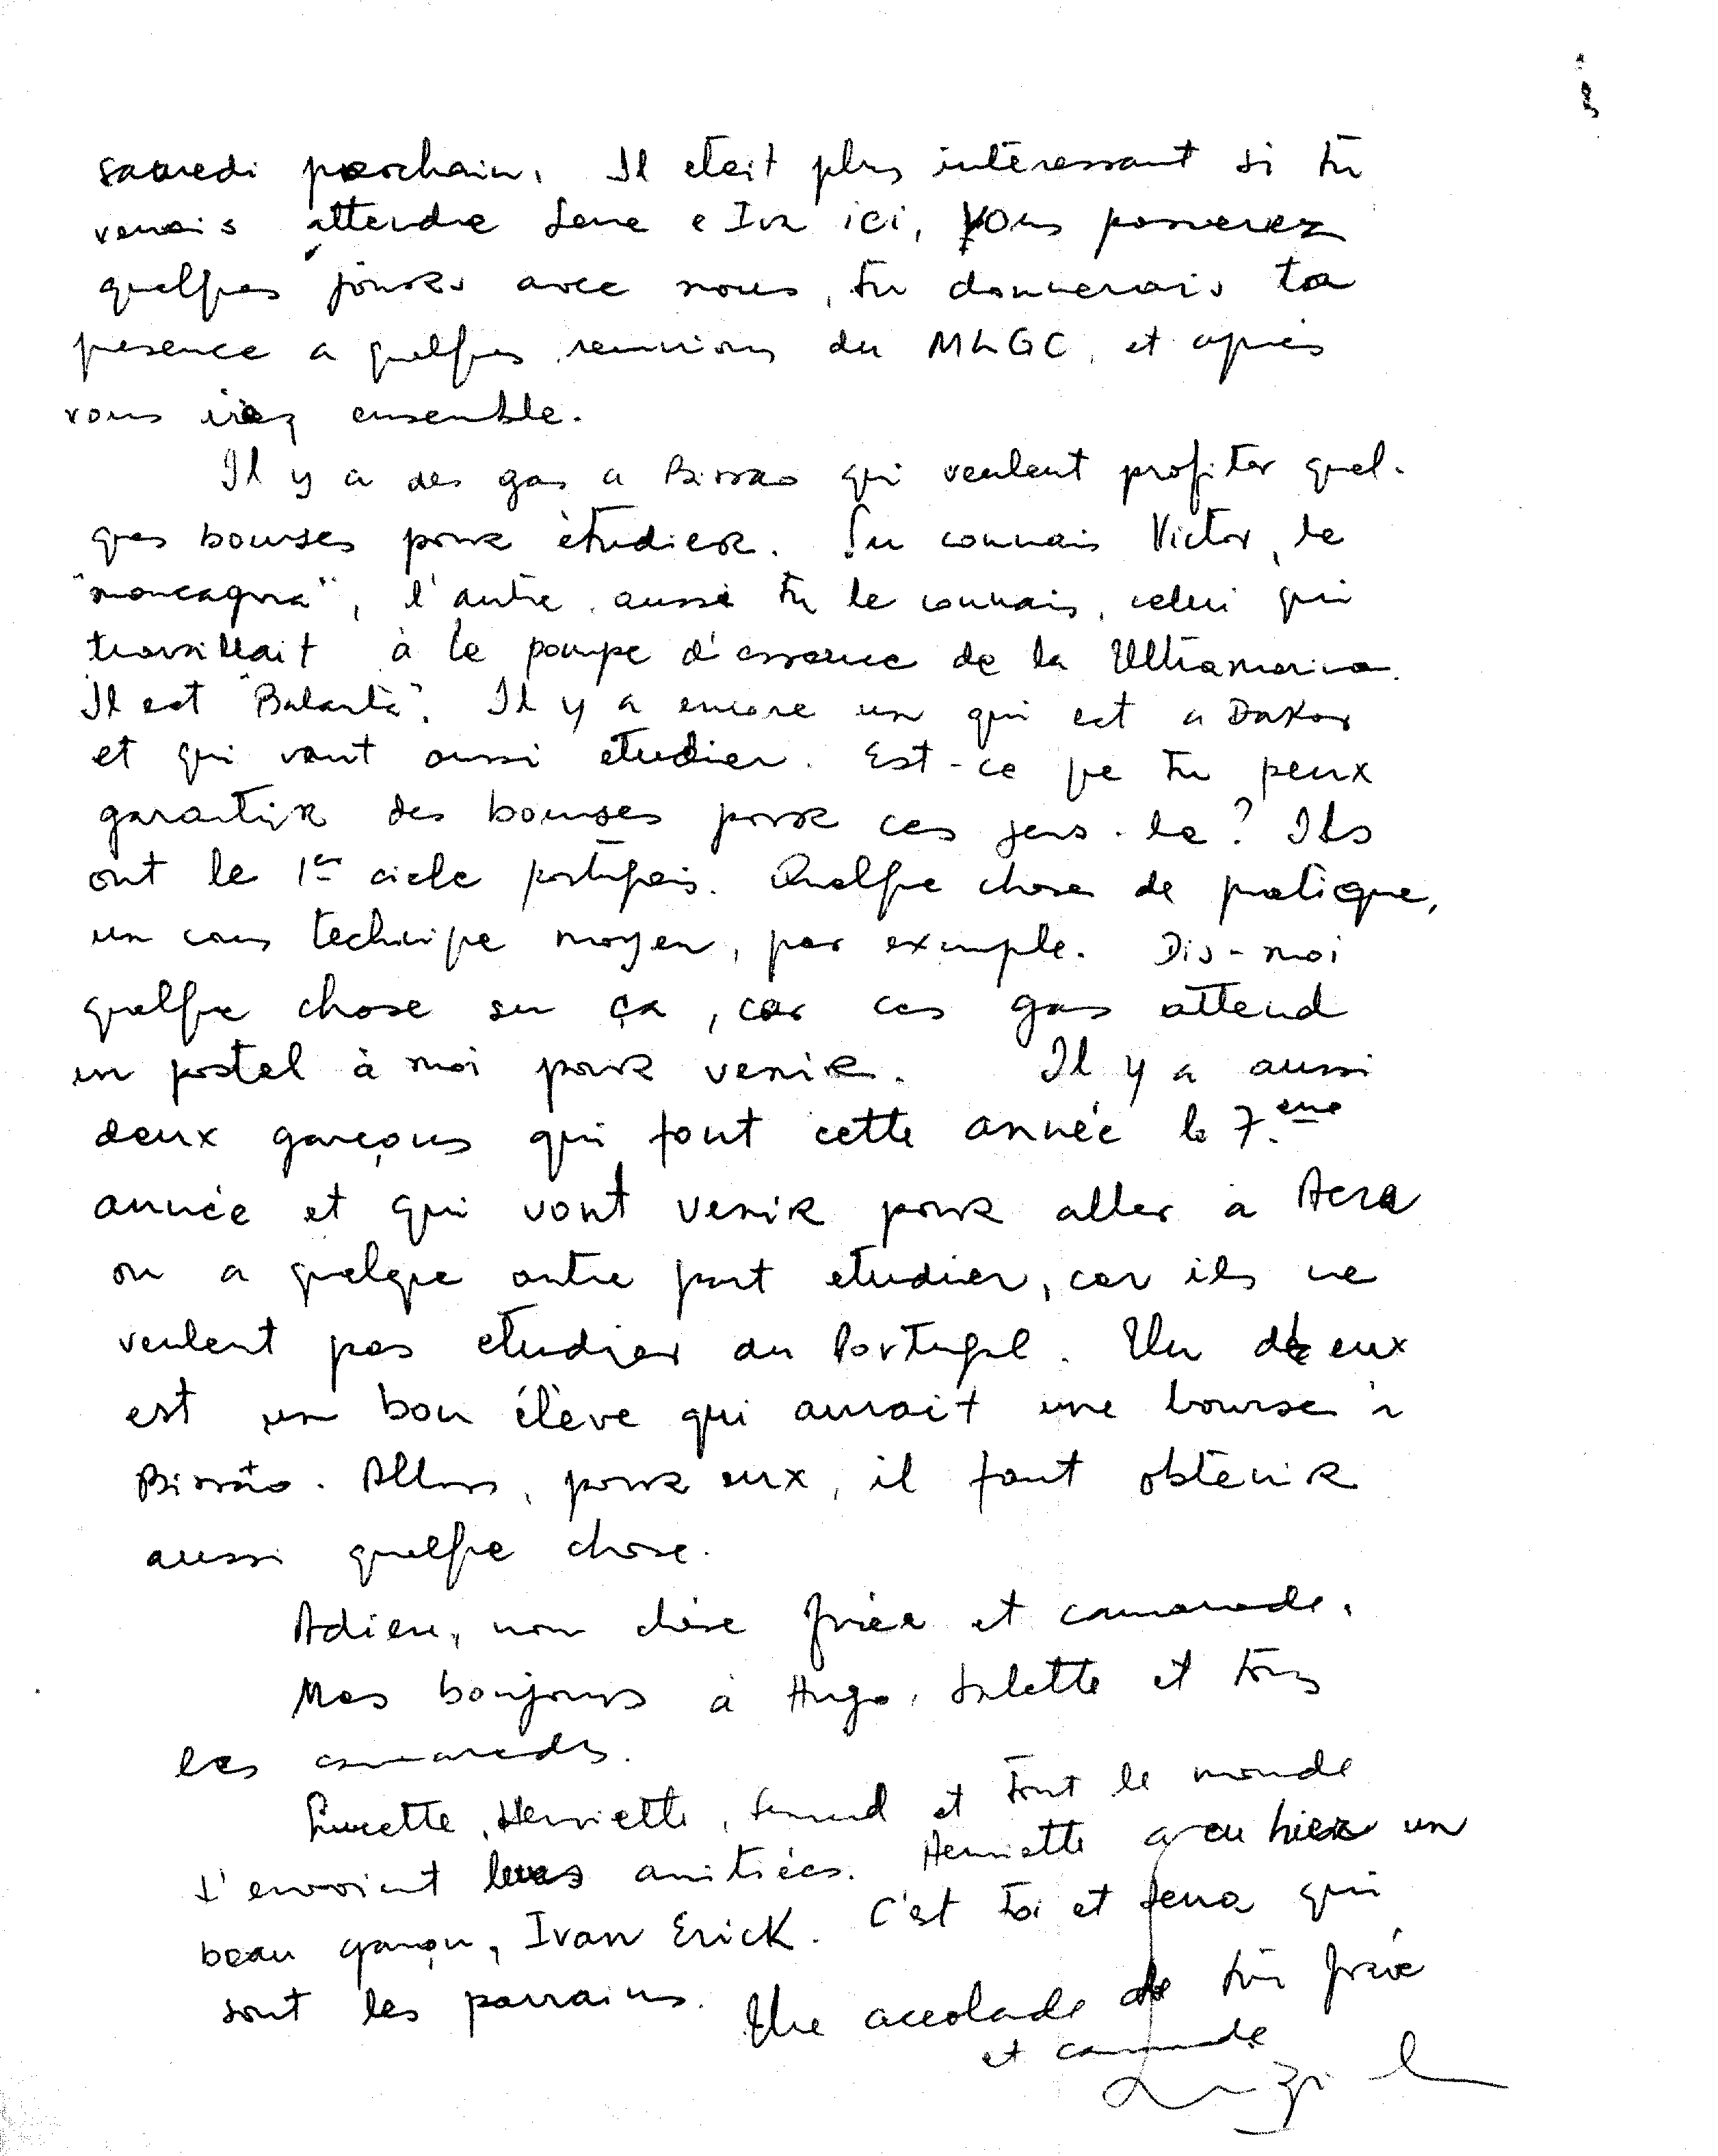 samedi prochain. Il etait plus intéressant si tu
venais attendre Lena e Iva ici, vous passerez
quelques jours avec nous, tu donnerais ta
presence a quelques reunions du MLGC, et après
vous irez ensemble.
Il y a des gas a Bissao qui veulent profiter quel-
ques bourses pour ètudier. Tu connais Victor, le
"moncagna", l'autre aussi tu le connais, celui qui
travaillait à la pompe d'essence de la Ultramarina.
Il est "Balanta". Il y a encore un qui est a Dakar
et qui vont aussi etudier. Est-ce que tu peux
garantir des bourses pour ces gens-la? Ils
ont le 1er cicle portugais. Quelque chose de pratique,
un cours technique moyen, par exemple. Dis-moi
quelque chose sur ça, car ces gas attend
un postal à moi pour venir. Il y a aussi
deux garçons qui font cette année le 7.eme
année et qui vont venir pour aller a Acra
ou a quelque autre part etudier, car ils ne
veulent pas etudier au Portugal. Un de eux
est un bon élève qui aurait une bourse à
Bissão. Allors, pour eux, il faut obtenir
aussi quelque chose.
Adieu, mon chère frère et camarade.
Mes bonjours à Hugo, et tous
les camarades.
Lucette, Henriette, et tout le monde
t'envoient leurs amitiées. Henriette a eu hier un
beau garçon, Ivan Erick. C'est toi et Lena qui
sont les parrains. Une accolade de ton frère
et camarade